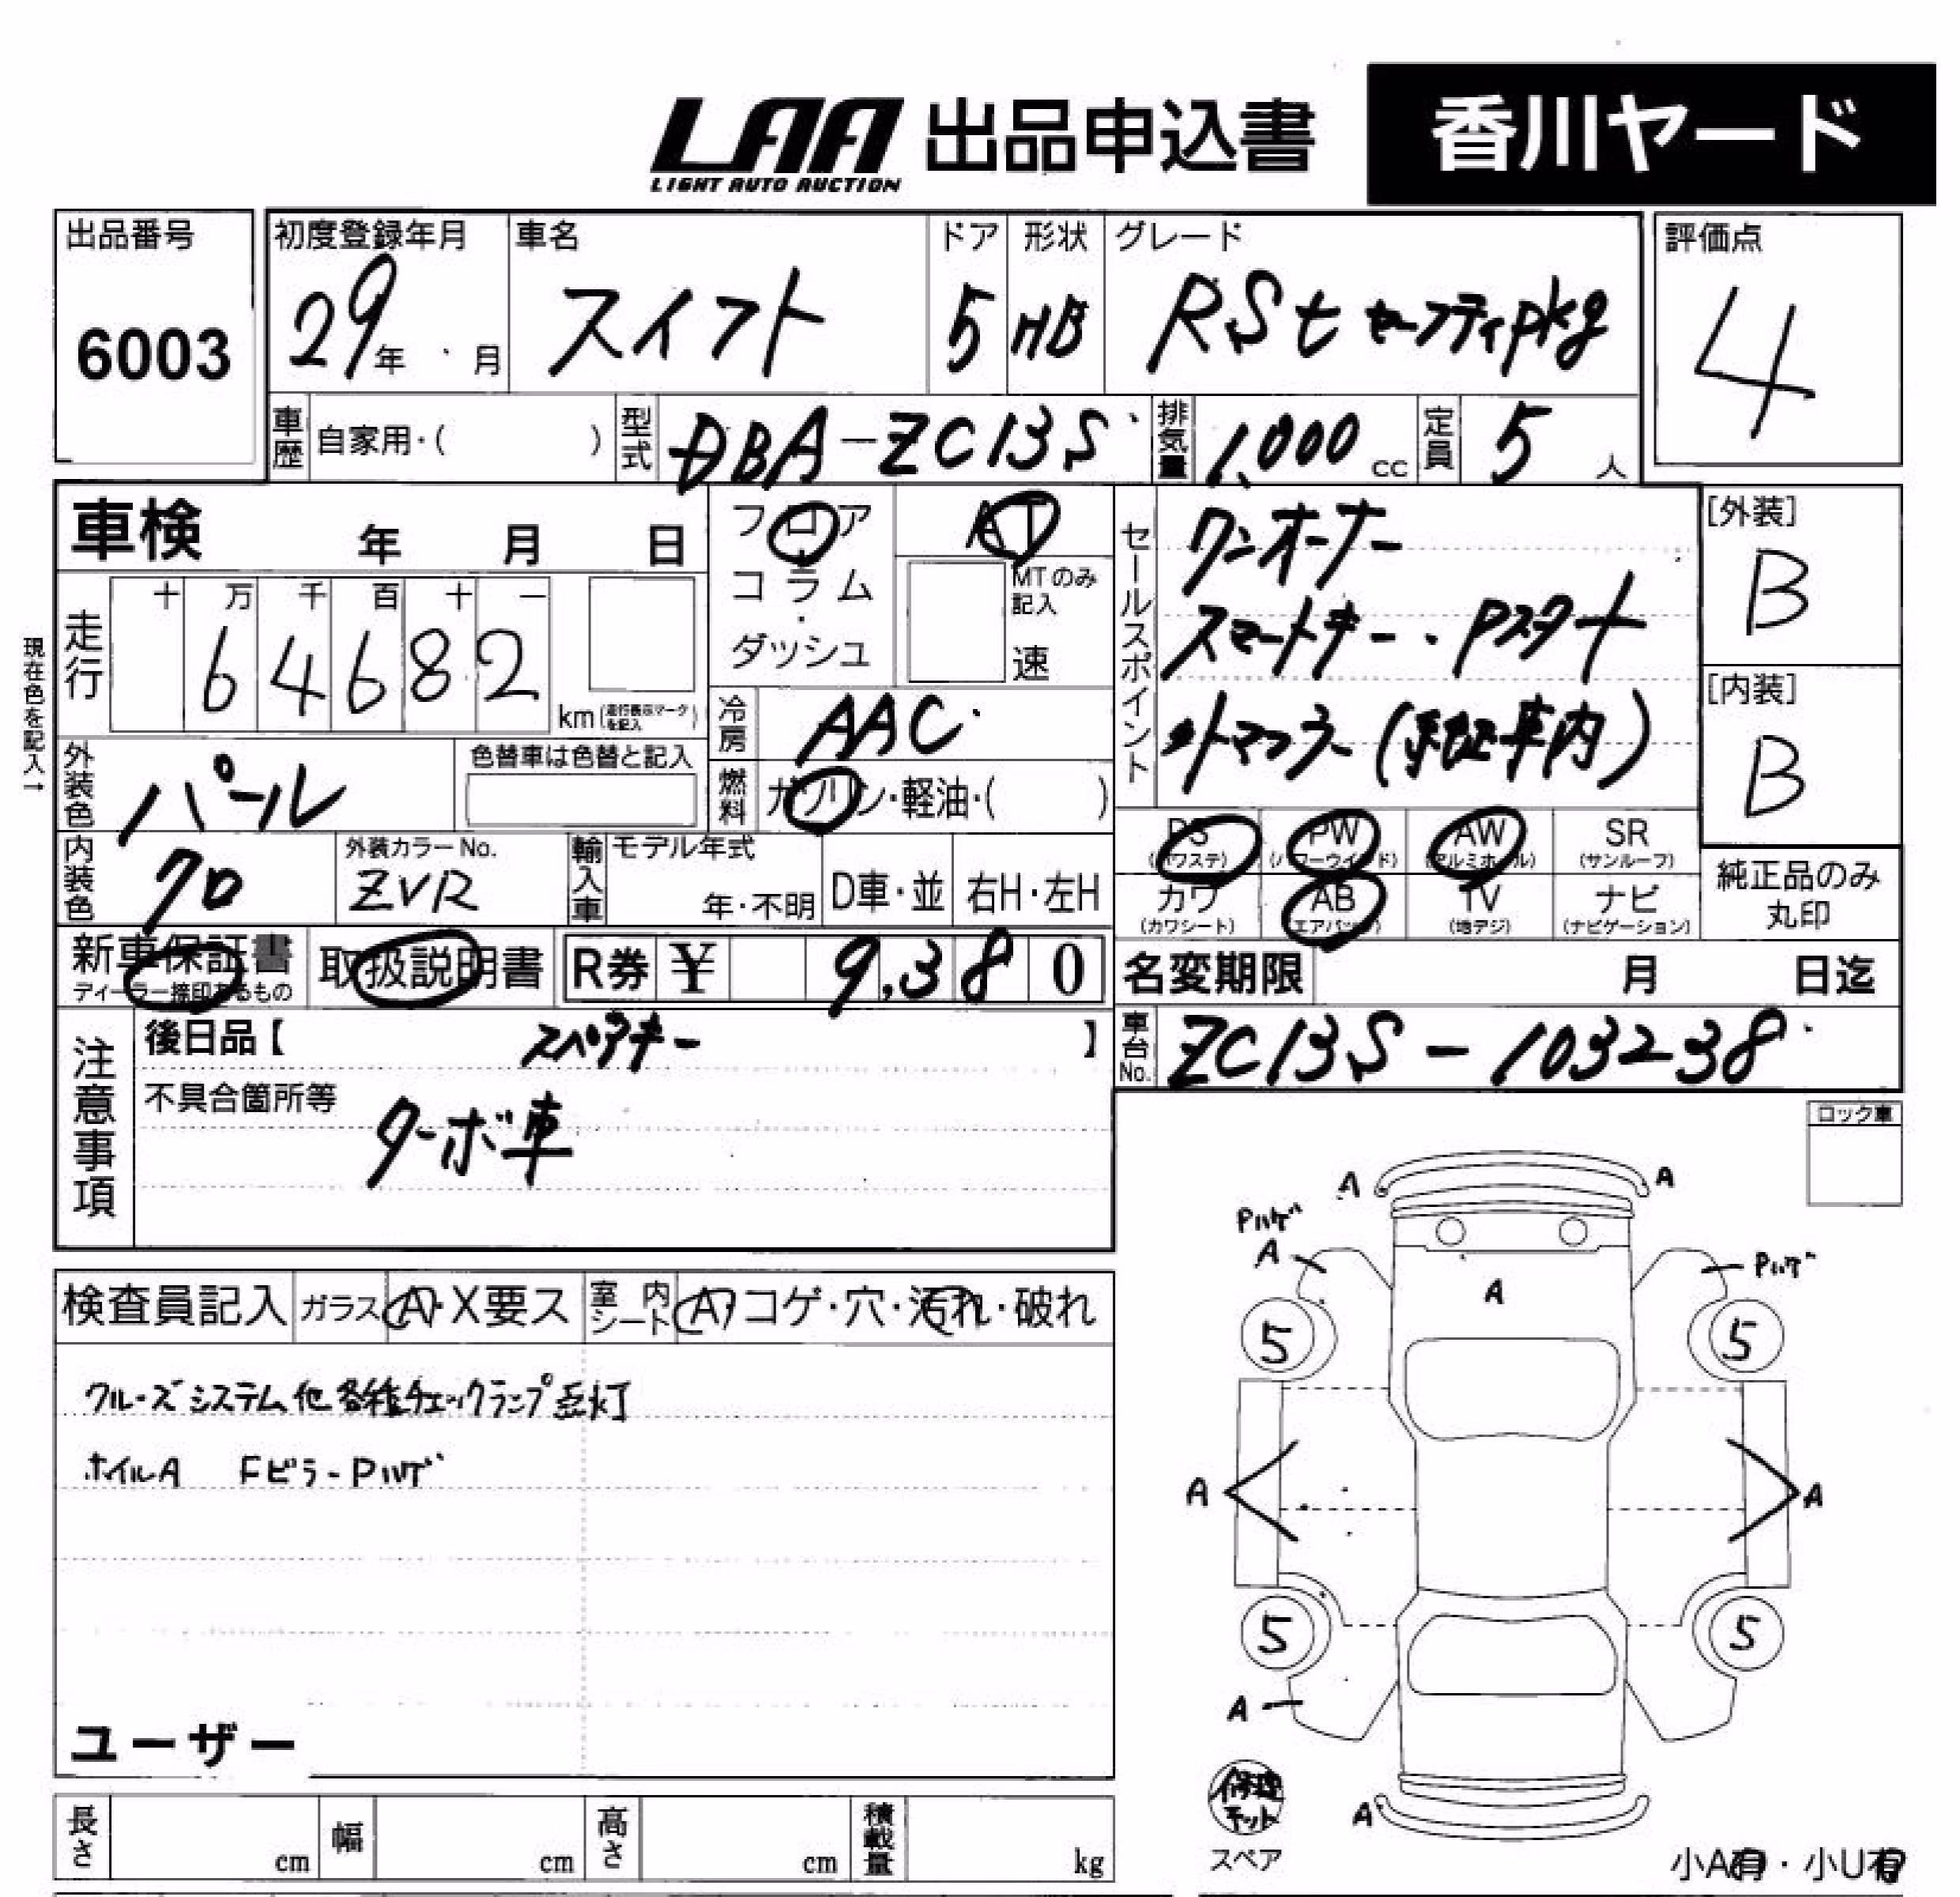 LAA 出品申込書 香川ヤード
LIGHT AUTO AUCTION
出品番号 初度登録年月 車名 ドア 形状 グレード 評価点
6003 29年 月 スイフト 5 HB RSt セーフティpkg 4
車歴 自家用・( ) 型式 DBA-ZC13S 排気量 1,000 cc 定員 5 人
車検 年 月 日
フロア・コラム・ダッシュ
AT
MTのみ記入
速
セールスポイント
ワンオーナー
スマートキー・Pスタート
外マフラー(純正車内)
[外装]
B
[内装]
B
現在色を記入→
走行 十 万 千 百 十 一
6 4 6 8 2
km (走行表示マークを記入)
冷房 AAC
外装色 パール
色替車は色替と記入
燃料 ガソリン・軽油・( )
内装色 クロ
外装カラーNo.
ZVR
輸入車 モデル年式
年・不明 D車・並 右H・左H
PS (パワステ) PW (パワーウインド) AW (アルミホイール) SR (サンルーフ)
カワ (カワシート) AB (エアバッグ) TV (地デジ) ナビ (ナビゲーション)
純正品のみ
丸印
新車保証書 取扱説明書 R券 ¥ 9,380
ディーラー捺印あるもの
名変期限 月 日迄
注意事項
後日品【 スペアキー 】
車台No. ZC13S-103238
不具合箇所等
ターボ車
ロック車
検査員記入 ガラス A・X要ス 室内シート A・コゲ・穴・汚れ・破れ
クルーズシステム他各種チェックランプ点灯
ホイルA Fピラー Pハゲ
ユーザー
A A
Pハゲ
A
Pハゲ
A
5 5
A A
5 5
A
A
修理キット
スペア
小A有・小U有
長さ cm 幅 cm 高さ cm 積載量 kg